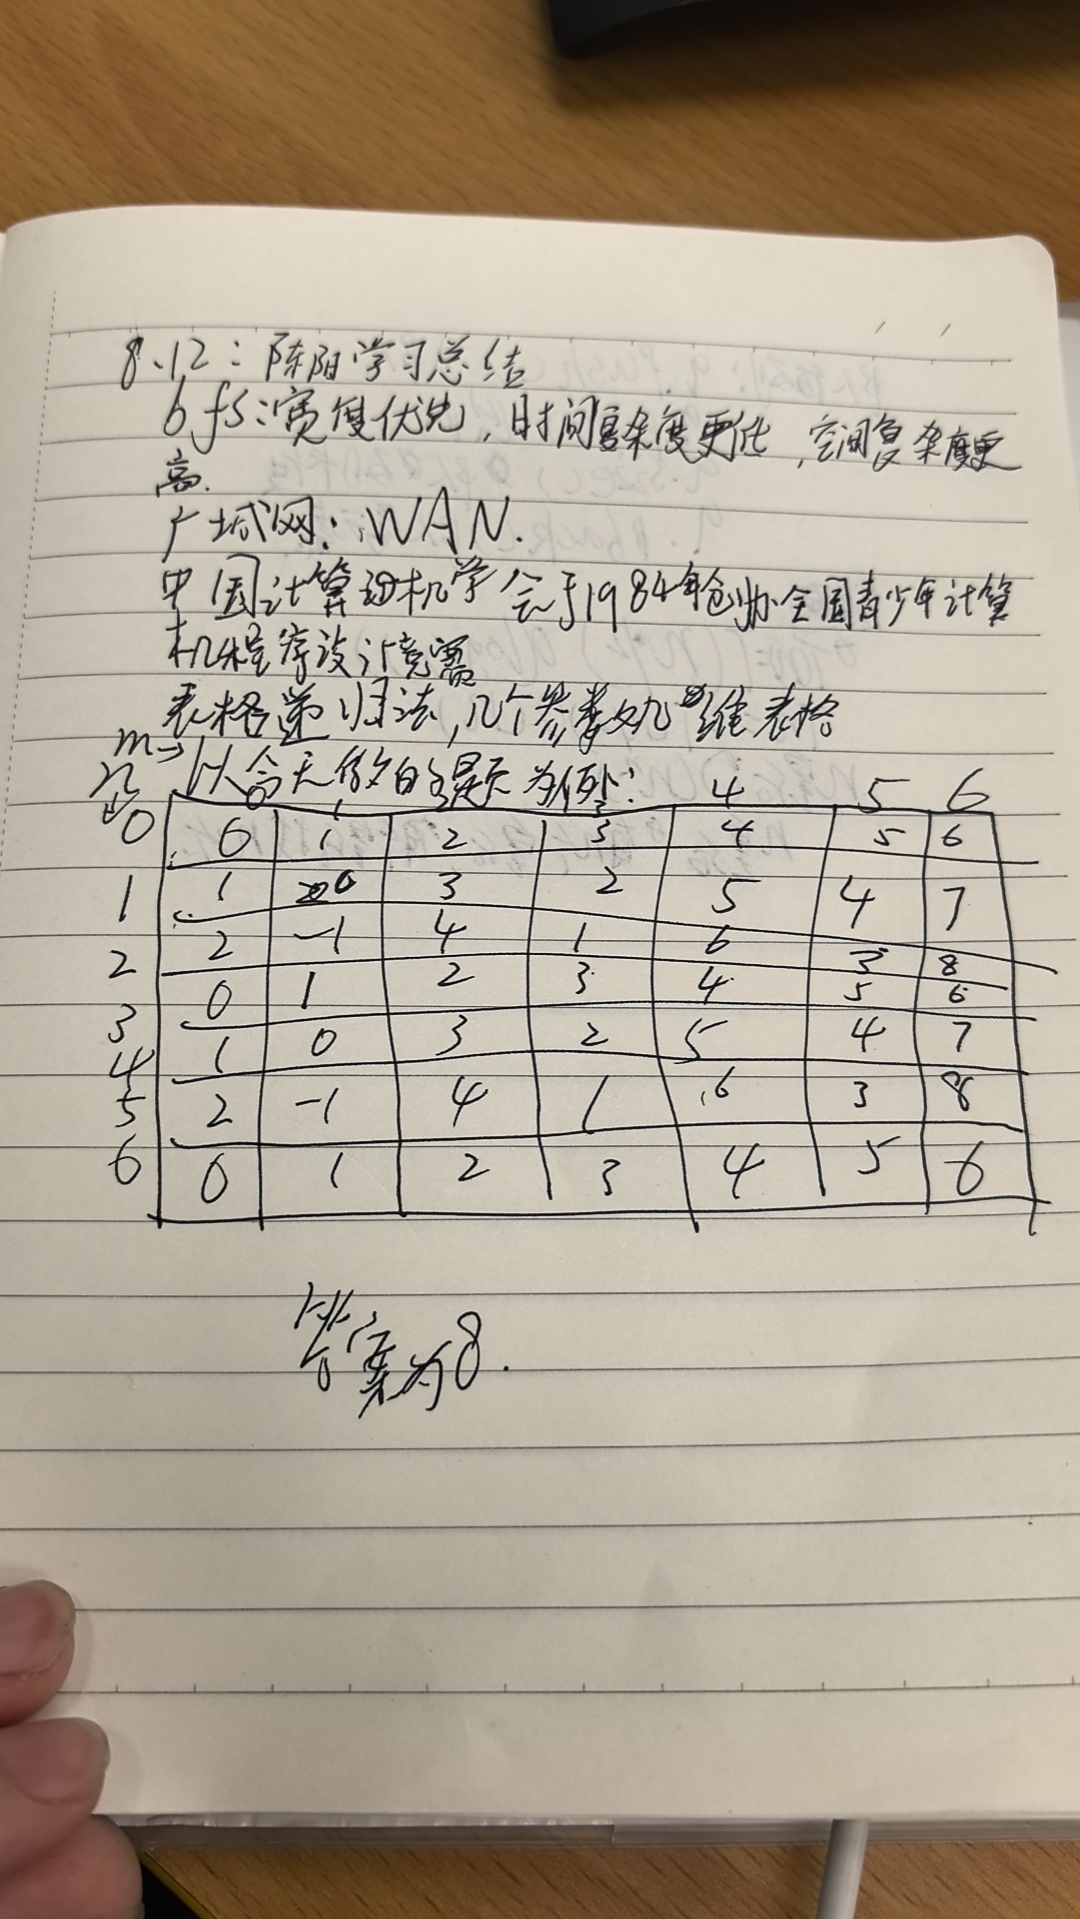 8.12：陈阳学习总结
bfs：宽度优先，时间复杂度更低，空间复杂度更
高.
广域网：WAN.
中国计算机学会于1984年创办全国青少年计算
机程序设计竞赛
表格递归法，几个参数几维表格
m→ 以今天做的题为例：
n↓ 0 1 3 4 5 6
0 0 1 2 3 4 5 6
1 1 0 3 2 5 4 7
2 2 -1 4 1 6 3 8
3 0 1 2 3 4 5 6
4 1 0 3 2 5 4 7
5 2 -1 4 1 6 3 8
6 0 1 2 3 4 5 6
答案为8.